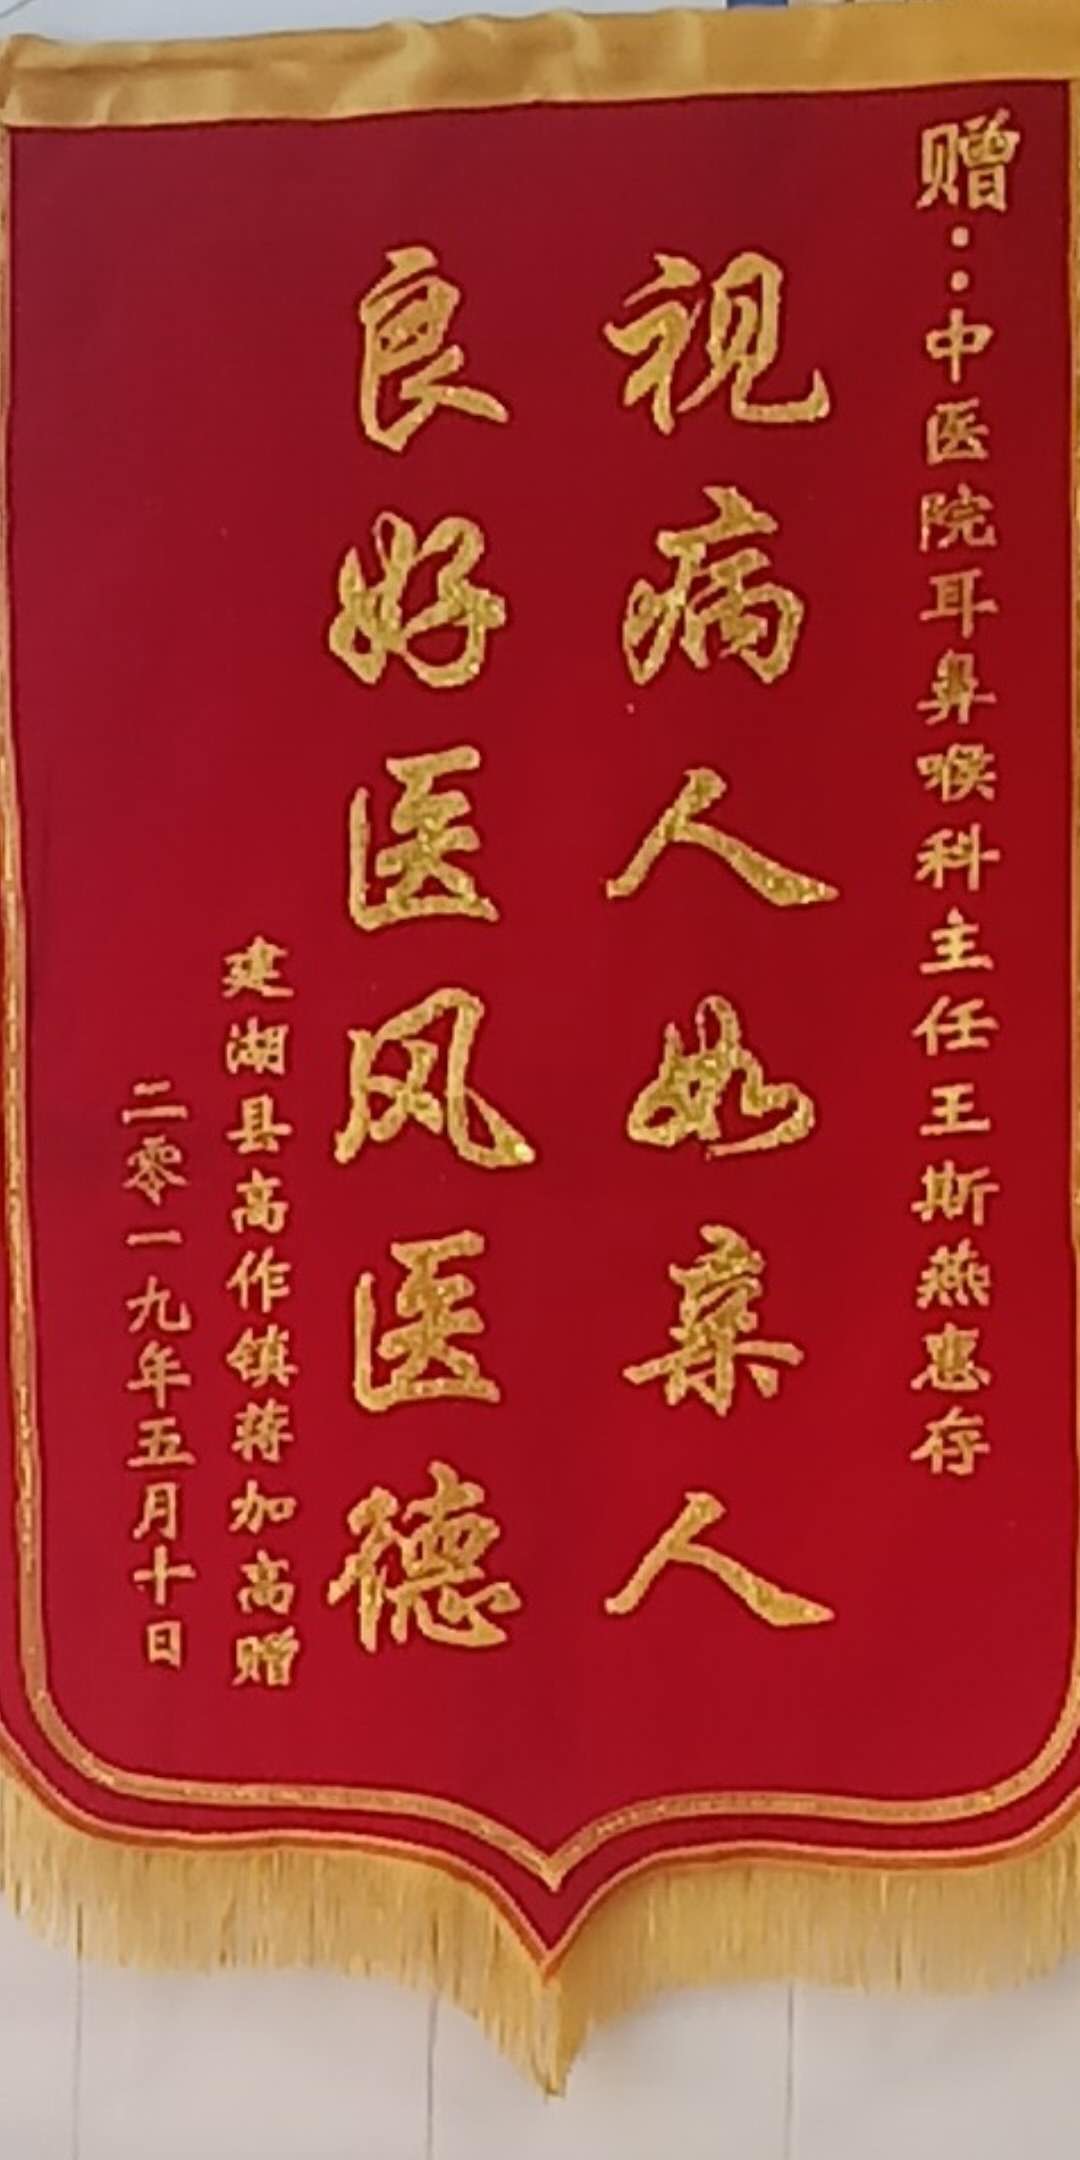 赠：中医院耳鼻喉科主任王斯燕惠存
视病人如亲人
良好医风医德
建湖县高作镇蒋加高赠
二零一九年五月十日